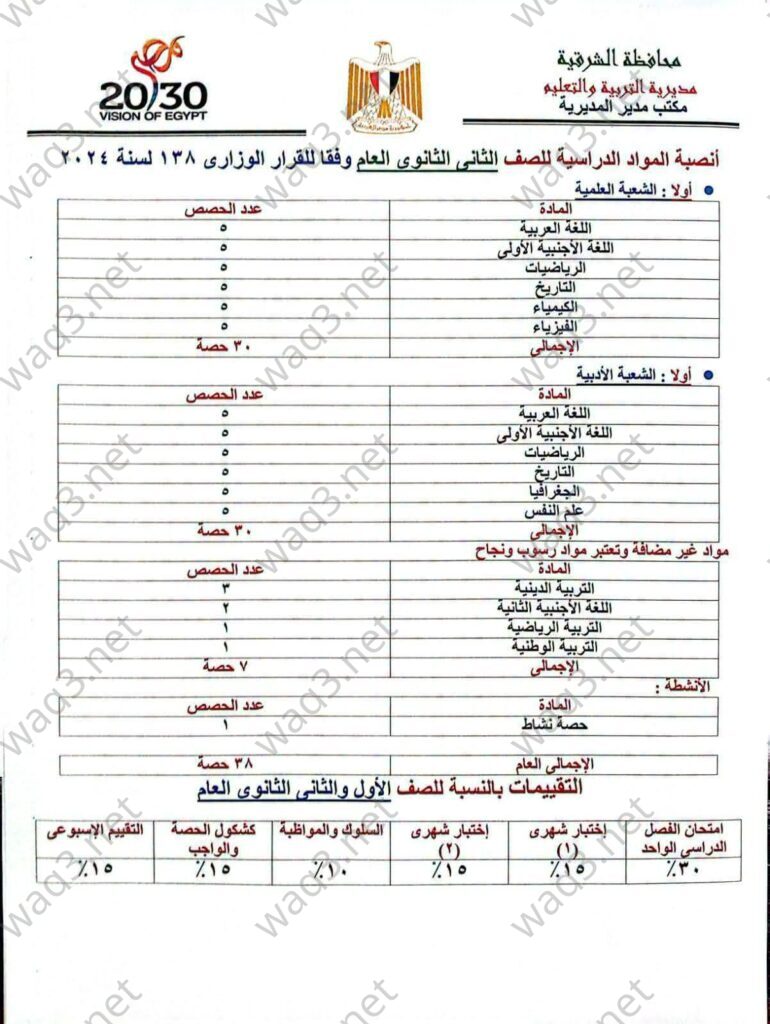 محافظة الشرقية
مديرية التربية والتعليم
مكتب مدير المديرية
2030
VISION OF EGYPT
أنصبة المواد الدراسية للصف الثانى الثانوى العام وفقا للقرار الوزارى ١٣٨ لسنة ٢٠٢٤
أولا : الشعبة العلمية
المادة عدد الحصص
اللغة العربية ٥
اللغة الأجنبية الأولى ٥
الرياضيات ٥
التاريخ ٥
الكيمياء ٥
الفيزياء ٥
الإجمالى ٣٠ حصة
أولا : الشعبة الأدبية
المادة عدد الحصص
اللغة العربية ٥
اللغة الأجنبية الأولى ٥
الرياضيات ٥
التاريخ ٥
الجغرافيا ٥
علم النفس ٥
الإجمالى ٣٠ حصة
مواد غير مضافة وتعتبر مواد رسوب ونجاح
المادة عدد الحصص
التربية الدينية ٣
اللغة الأجنبية الثانية ٢
التربية الرياضية ١
التربية الوطنية ١
الإجمالى ٧ حصة
الأنشطة :
المادة عدد الحصص
حصة نشاط ١
الإجمالى العام ٣٨ حصة
التقييمات بالنسبة للصف الأول والثانى الثانوى العام
امتحان الفصل الدراسى الواحد إختبار شهرى (١) إختبار شهرى (٢) السلوك والمواظبة كشكول الحصة والواجب التقييم الإسبوعى
٣٠٪ ١٥٪ ١٥٪ ١٠٪ ١٥٪ ١٥٪
waq3.net